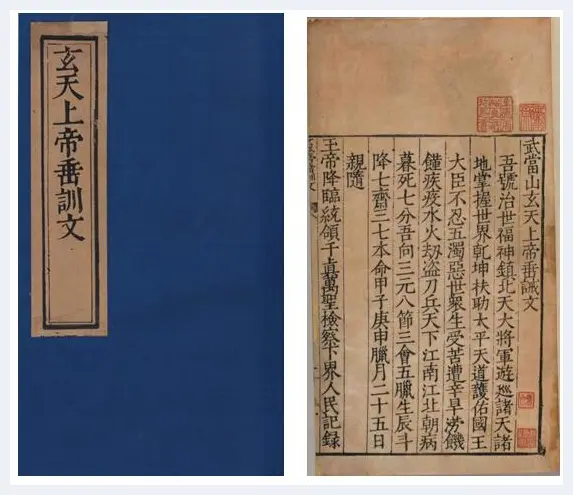 玄天上帝垂訓文
武當山玄天上帝垂誡文
吾號治世福神鎮北天大將軍遊巡諸天諸
地掌握世界乾坤扶助太平天道護佑國王
大臣不忍五濁惡世衆生受苦遭辛旱澇饑
饉疾疫水火刼盗刀兵天下江南江北朝病
暮死七分吾向三元八節三會五臘生辰斗
降七齋三七本命甲子庚申臘月二十五日
親隨
玉帝降臨統領千眞萬聖檢察下界人民記録